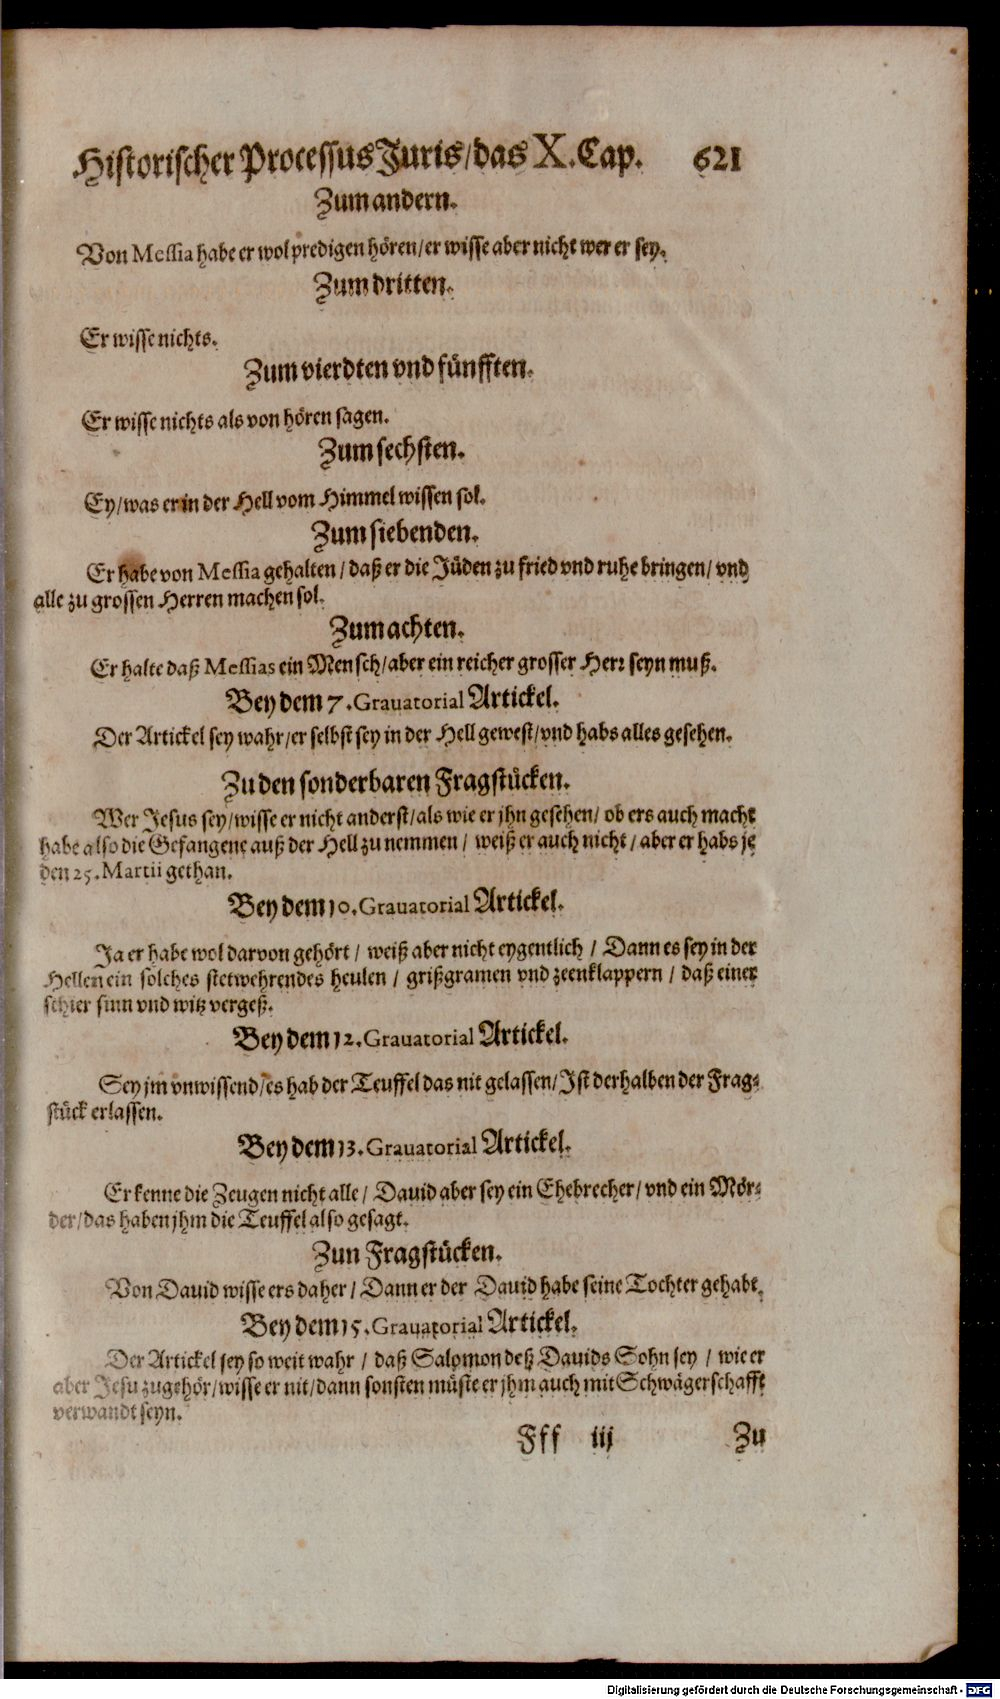 Historischer Processus Juris/das X. Cap. 621
Zum andern.
Von Messia habe er wol predigen hören/er wisse aber nicht wer er sey.
Zum dritten.
Er wisse nichts.
Zum vierdten vnd fünfften.
Er wisse nichts als von hören sagen.
Zum sechsten.
Ey/was er in der Hell vom Himmel wissen sol.
Zum siebenden.
Er habe von Messia gehalten/daß er die Jüden zu fried vnd ruhe bringen/vnd
alle zu grossen Herren machen sol.
Zum achten.
Er halte daß Messias ein Mensch/aber ein reicher grosser Herr seyn muß.
Bey dem 7. Grauatorial Artickel.
Der Artickel sey wahr/er selbst sey in der Hell gewest/vnd habs alles gesehen.
Zu den sonderbaren Fragstücken.
Wer Jesus sey/wisse er nicht anderst/als wie er jhn gesehen/ob ers auch macht
habe also die Gefangene auß der Hell zu nemmen/weiß er auch nicht/aber er habs je
den 25. Martii gethan.
Bey dem 10. Grauatorial Artickel.
Ja er habe wol darvon gehört/weiß aber nicht eygentlich/Dann es sey in der
Hellen ein solches stetwehrendes heulen/grißgramen vnd zeenklappern/daß einer
schier sinn vnd witz vergeß.
Bey dem 12. Grauatorial Artickel.
Sey jm vnwissend/es hab der Teuffel das nit gelassen/Ist derhalben der Frag-
stück erlassen.
Bey dem 13. Grauatorial Artickel.
Er kenne die Zeugen nicht alle/Dauid aber sey ein Ehebrecher/vnd ein Mör-
der/das haben jhm die Teuffel also gesagt.
Zun Fragstücken.
Von Dauid wisse ers daher/Dann er der Dauid habe seine Tochter gehabt.
Bey dem 15. Grauatorial Artickel.
Der Artickel sey so weit wahr/daß Salomon deß Dauids Sohn sey/wie er
aber Jesu zugehör/wisse er nit/dann sonsten müste er jhm auch mit Schwägerschafft
verwandt seyn.
Fff iij Zu
Digitalisierung gefördert durch die Deutsche Forschungsgemeinschaft - DFG